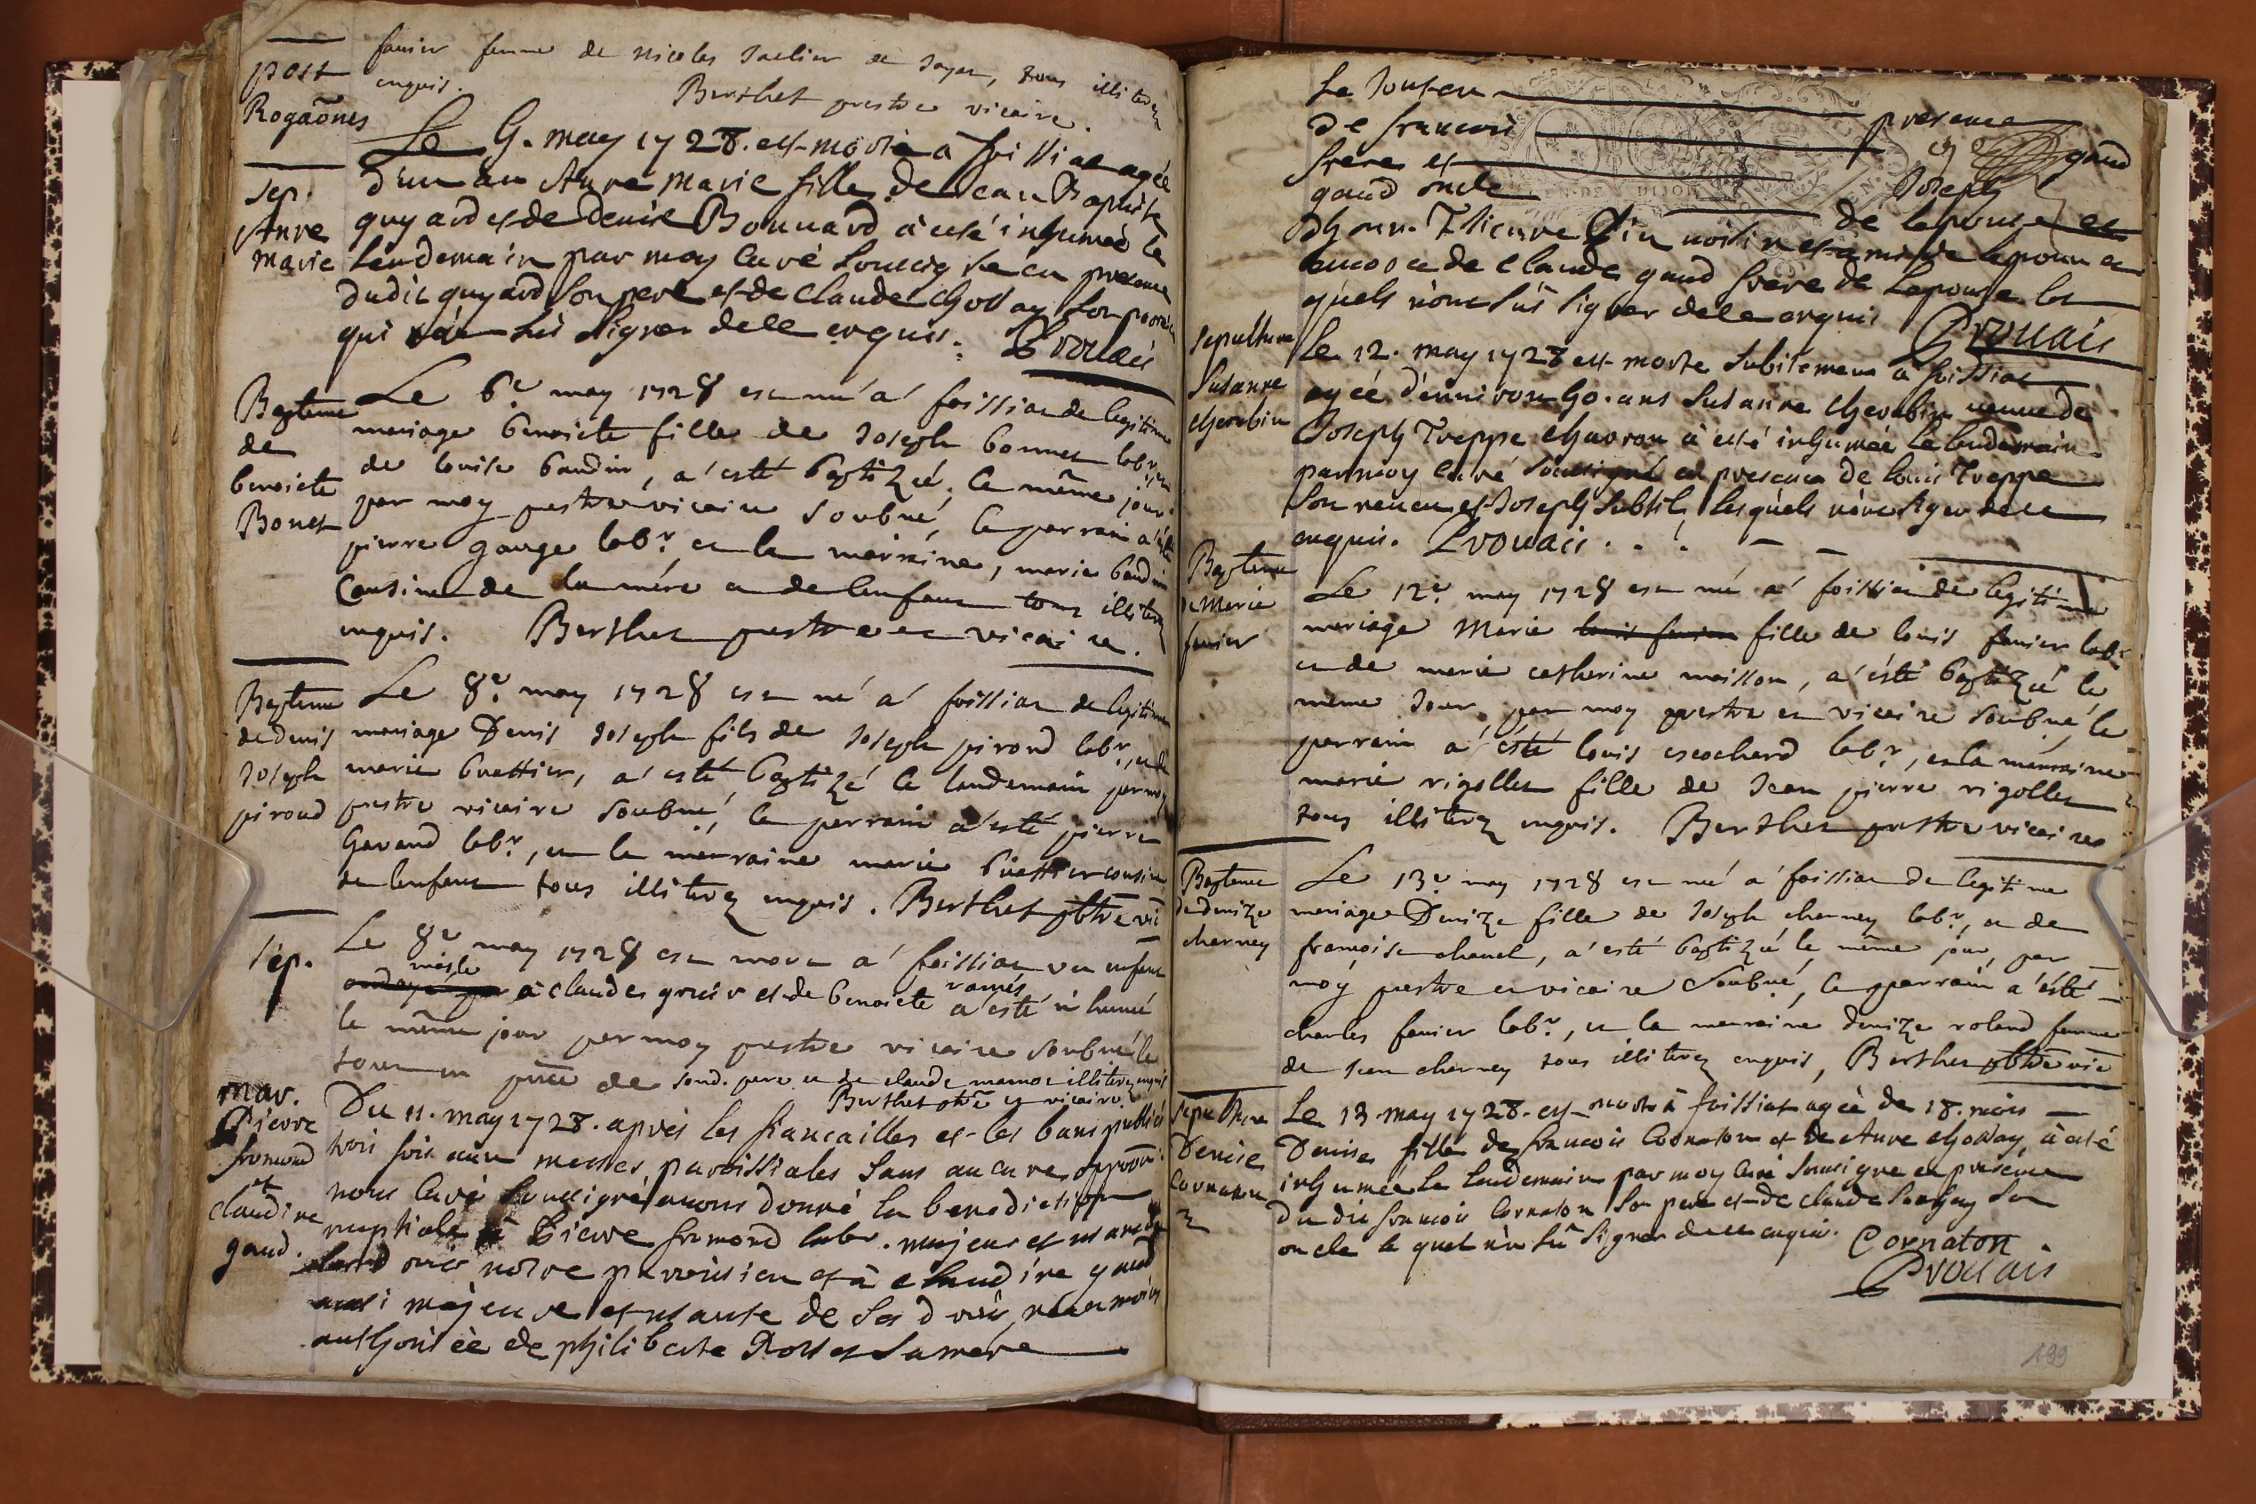 post
Rogaõnes
fanier femme de nicolas
enquis.
Berthet prestre vicaire.
sep.
Anne
marie
Le 6. may 1728. est morte à foissiat agée
d'un an Anne marie fille de Jean Baptiste
guyard et de denise Bonnard à esté inhumée le
lendemain par moy curé soussigné en presence
dudit guyard son pere et de claude son parein
qui n'ón sçû signer de ce enquis. Provais
Bapteme
de
benoiste
Bonet
Le 6e may 1728 est né á foissiat de legitime
mariage benoiste fille de Joseph bonnet labr. et
de louise baudin, a esté baptizée le même jour
par moy prestre vicaire soubné, le parrain a esté
pierre gauge labr. et la marraine, marie baudin
Cousine de la mére et de lenfant tous illiterez
enquis. Berthet prestre et vicaire.
Bapteme
de denis
Joseph
piroud
Le 8e may 1728 est né á foissiat de legitime
mariage Denis Joseph fils de Joseph piroud labr., et de
marie buattier, a esté baptizé le landemain par moy
prestre vicaire soubné, le parrain a esté pierre
Gavand labr., et la marraine marie buattier cousine
de lenfant tous illiterez enquis. Berthet pbtre vic
sép.
Le 8e may 1728 est mort a foissiat un enfant
masle
à claude et de benoiste a esté inhumé
le même jour par moy prestre vicaire soubné le
tout en pñce de sond. pere et de claude illiterez enquis
Berthet ptre et vicaire.
mar.
Pierre
fromond
et
claudine
gaud.
Du 11. may 1728. aprés les fiancailles et les bans publiés
trois fois aux messes paroissiales sans aucune opposon
nous curé soussigné avons donné la benediction
nuptiale à Pierre fromond labr. majeur et
notre paroissien et à claudine gaud
aussi majeure et de ses droits, néanmoins
authorisée de philiberte sa mere
Le tout en presence
de francois gaud
frére et Joseph
gaud oncle de lepouse et
voisin et ami de lepoux et
encore de claude gaud frere de Lepouse les
quels nont sçû signer de ce enquis Provais
sepulture
Susanne
cherobin
Le 12. may 1728 est morte subitement à foissiat
agée d'environ 60. ans Susanne cherobin veuve de
Joseph Treppe à esté inhumée le lendemain
par moy curé soussigné en presence de louis Treppe
son neveu et Joseph Subtil, lesquels signer de ce
enquis. Provais
Bapteme
de Marie
fanier
Le 12e may 1728 est né á foissiat de legitime
mariage Marie fille de louis fanier labr
et de marie catherine moisson, a esté baptizée le
même jour par moy prestre et vicaire soubné, le
parrain a esté louis escochard labr, et la marraine
marie rigollet fille de Jean pierre rigollet
tous illiterez enquis. Berthet prestre vicaire
Bapteme
de denize
charney
Le 13e may 1728 est né á foissiat de legitime
mariage Denize fille de Joseph charney labr, et de
françoise chanel, a esté baptizée le même jour, par
moy prestre et vicaire soubné, le parrain a esté
charles fanier labr., et la marraine denize roland femme
de Jean charney tous illiterez enquis, Berthet pbtre vic
sepulture
Denise
Cornaton
Le 13 may 1728. est morte à foissiat agée de 18. mois
Denise fille de francois Cornaton et de Anne à esté
inhumée le lendemain par moy curé soussigné en presence
dudit francois Cornaton son pere et de claude son
oncle le quel n'a sçû signer de ce enquis. Cornaton.
Provais
199